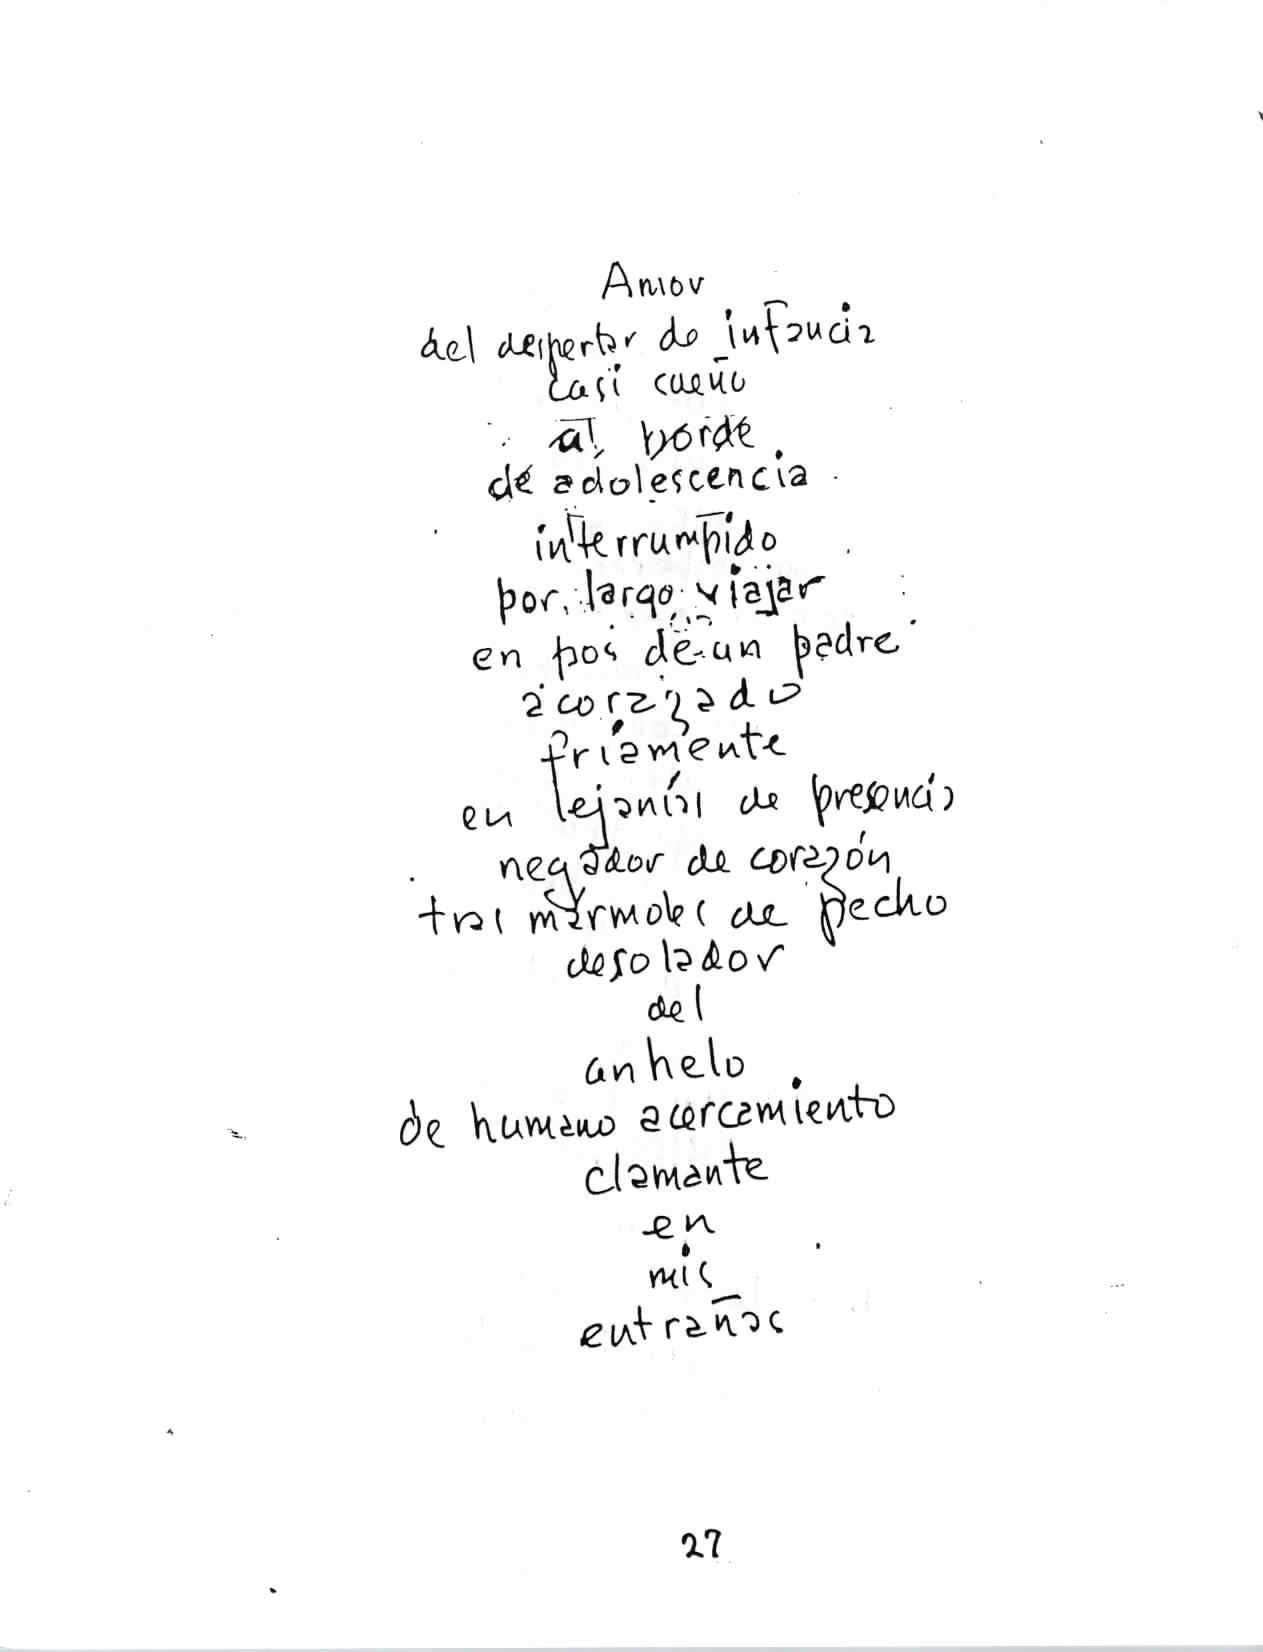 Amor
del despertar de infancia
casi sueño
al borde
de adolescencia
interrumpido
por largo viajar
en pos de un padre
acorazado
fríamente
en lejanías de presencia
negador de corazón
tras mármoles de pecho
desolador
del
anhelo
de humano acercamiento
clamante
en
mis
entrañas
27